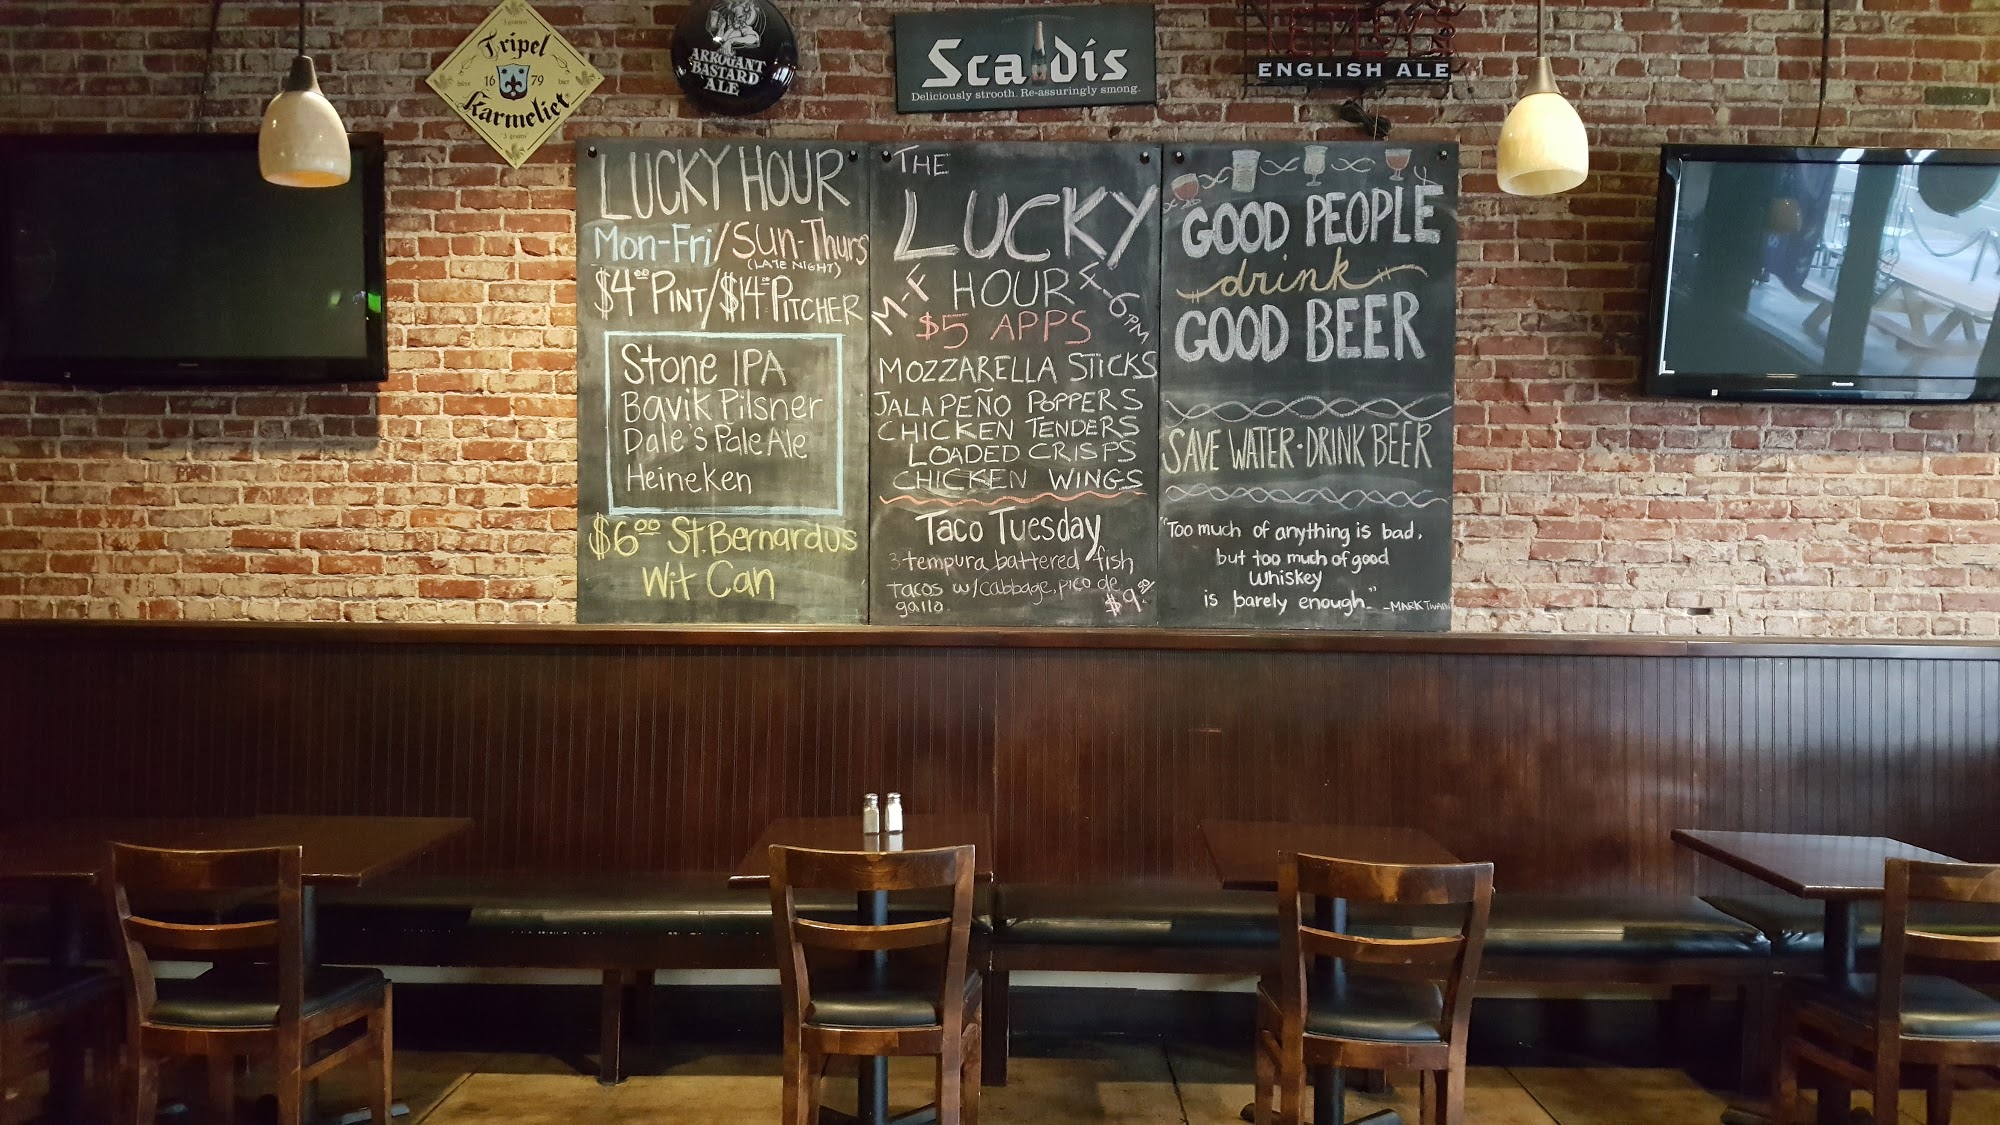 3 grains
Tripel
bière 16 79 bier
Karmeliet
3 grains
ARROGANT
BASTARD
ALE
Scaldis
Deliciously strooth. Re-assuringly smong.
ENGLISH ALE
LUCKY HOUR
Mon-Fri/Sun-Thurs
(LATE NIGHT)
$4.00 PINT/$14.00 PITCHER
Stone IPA
Bavik Pilsner
Dale's Pale Ale
Heineken
$6.00 St. Bernardus
Wit Can
THE
LUCKY
M-F HOUR 4-6 PM
$5 APPS
MOZZARELLA STICKS
JALAPEÑO POPPERS
CHICKEN TENDERS
LOADED CRISPS
CHICKEN WINGS
Taco Tuesday
3 tempura battered fish
tacos w/cabbage, pico de
gallo.
GOOD PEOPLE
drink
GOOD BEER
SAVE WATER · DRINK BEER
"Too much of anything is bad,
but too much of good
whiskey
is barely enough." -MARK TWAIN
Panasonic
Panasonic